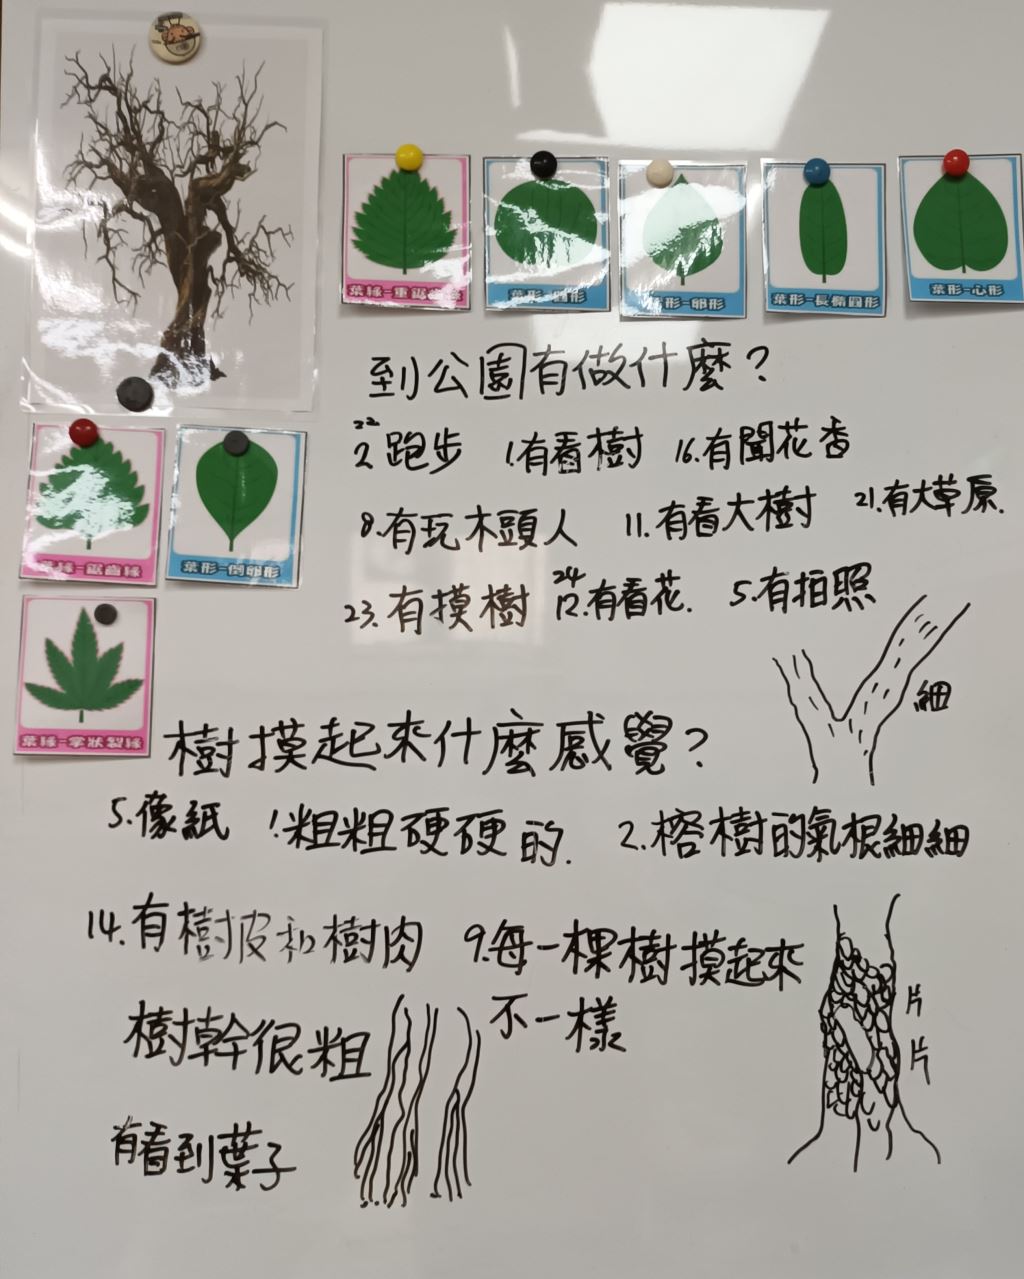 葉緣-重鋸齒緣
葉形-圓形
葉形-卵形
葉形-長橢圓形
葉形-心形
葉緣-鋸齒緣
葉形-倒卵形
葉緣-掌狀裂緣
到公園有做什麼?
22
2.跑步 1.有看樹 16.有聞花香
8.有玩木頭人 11.有看大樹 21.有大草原.
24
23.有摸樹 12.有看花. 5.有拍照
細
樹摸起來什麼感覺?
5.像紙 1.粗粗硬硬的. 2.榕樹的氣根細細
14.有樹皮和樹肉 9.每一棵樹摸起來
不一樣
樹幹很粗
片
片
有看到葉子